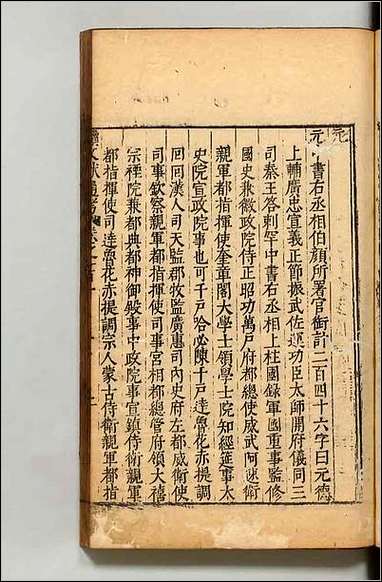 元
元中書右丞相伯顏所署官銜計二百四十六字曰元德
上輔廣忠宣義正節振武佐運功臣太師開府儀同三
司秦王答剌罕中書右丞相上柱國錄軍國重事監修
國史兼徽政院侍正昭功萬戶府都總使威武阿速衛
親軍都指揮使奎章閣大學士領學士院知經筵事太
史院宣政院事也可千戶哈必陳千戶達魯花赤提調
回回漢人司天監郡牧監廣惠司內史府左都威衛使
司事欽察親軍都指揮使司事宮相都總管府領大禧
宗禋院兼都典都神御殿事中政院事宣鎮侍衛親軍
都指揮使司達魯花赤提調宗人蒙古侍衛親軍都指
文獻通考